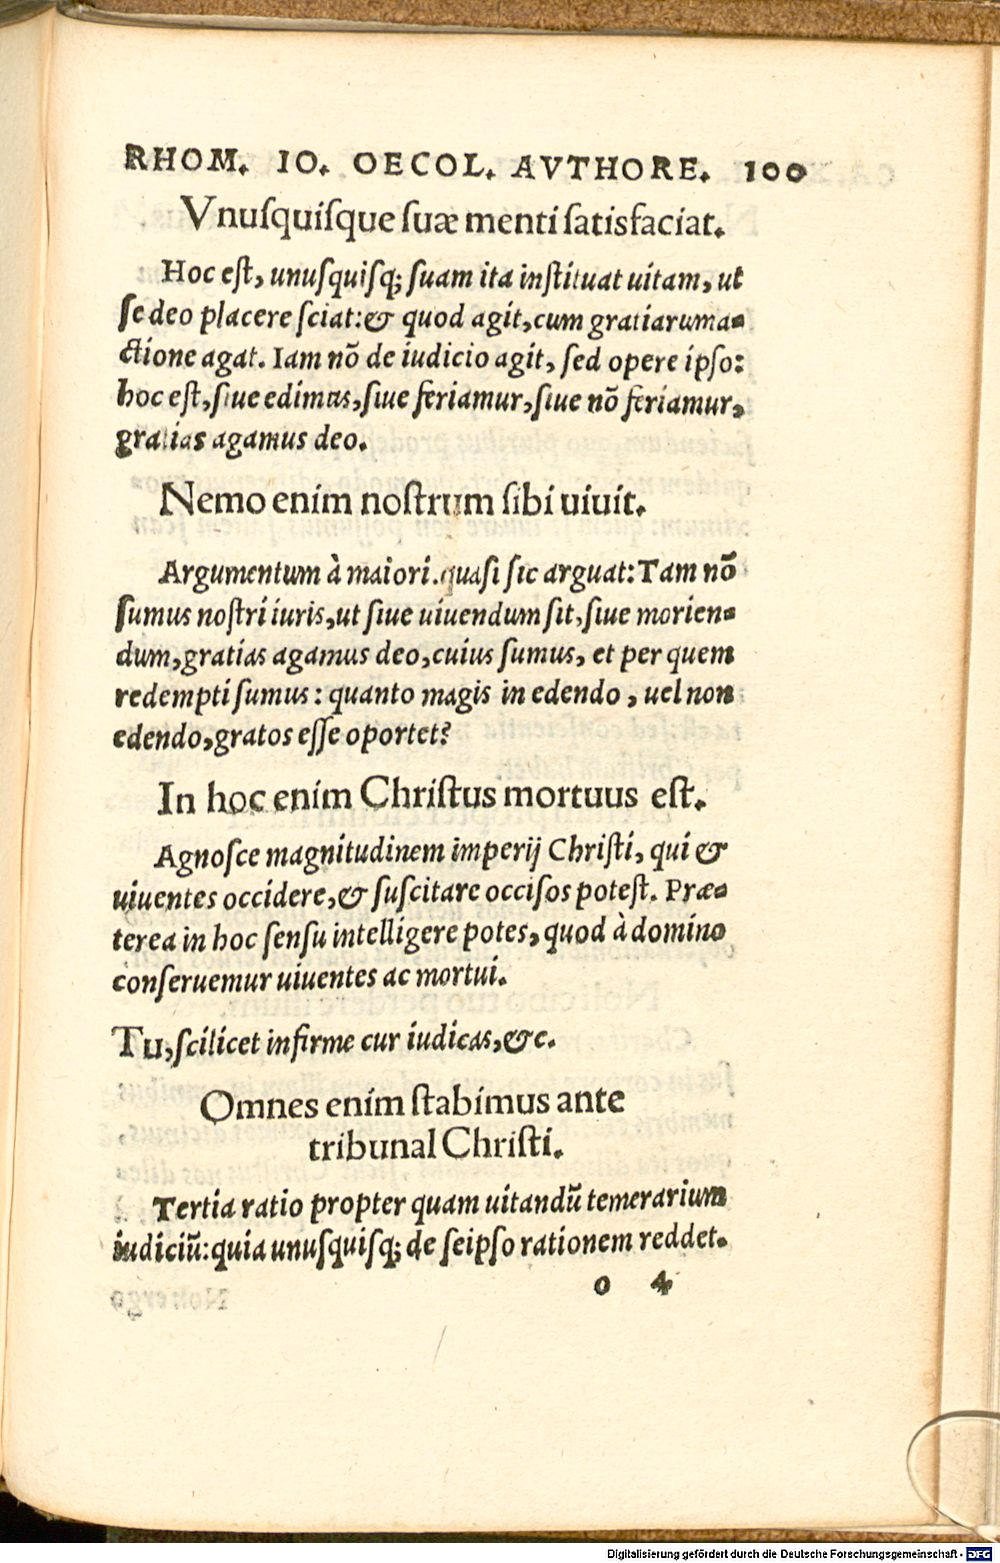 RHOM. IO. OECOL. AVTHORE. 100
Vnuſquiſque ſuæ menti ſatisfaciat.
Hoc eſt, unuſquiſq; ſuam ita inſtituat uitam, ut
ſe deo placere ſciat: & quod agit, cum gratiaruma-
ctione agat. Iam nõ de iudicio agit, ſed opere ipſo:
hoc eſt, ſiue edimus, ſiue feriamur, ſiue nõ feriamur,
gratias agamus deo.
Nemo enim noſtrum ſibi uiuit.
Argumentum à maiori. quaſi ſic arguat: Tam nõ
ſumus noſtri iuris, ut ſiue uiuendum ſit, ſiue morien-
dum, gratias agamus deo, cuius ſumus, et per quem
redempti ſumus: quanto magis in edendo, uel non
edendo, gratos eſſe oportet?
In hoc enim Chriſtus mortuus eſt.
Agnoſce magnitudinem imperij Chriſti, qui &
uiuentes occidere, & ſuſcitare occiſos poteſt. Præ-
terea in hoc ſenſu intelligere potes, quod à domino
conſeruemur uiuentes ac mortui.
Tu, ſcilicet infirme cur iudicas, &c.
Omnes enim ſtabimus ante
tribunal Chriſti.
Tertia ratio propter quam uitandũ temerarium
iudiciũ: quia unuſquiſq; de ſeipſo rationem reddet.
o 4
Digitalisierung gefördert durch die Deutsche Forschungsgemeinschaft - DFG